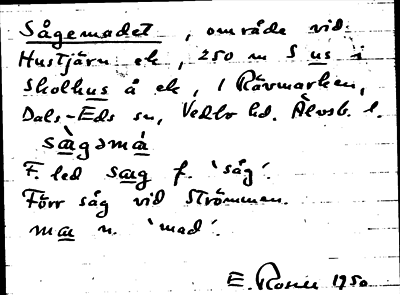 Sågemadet, område vid
Hustjärn ek, 250 m S us i
Skolhus å ek, i Rävmarken,
Dals-Eds sn, Vedbo hd. Älvsb. l.
sàgəmá
F. led sag f. 'såg'.
Förr såg vid Strömmen.
ma n. 'mad'.
E. Rosell 1950